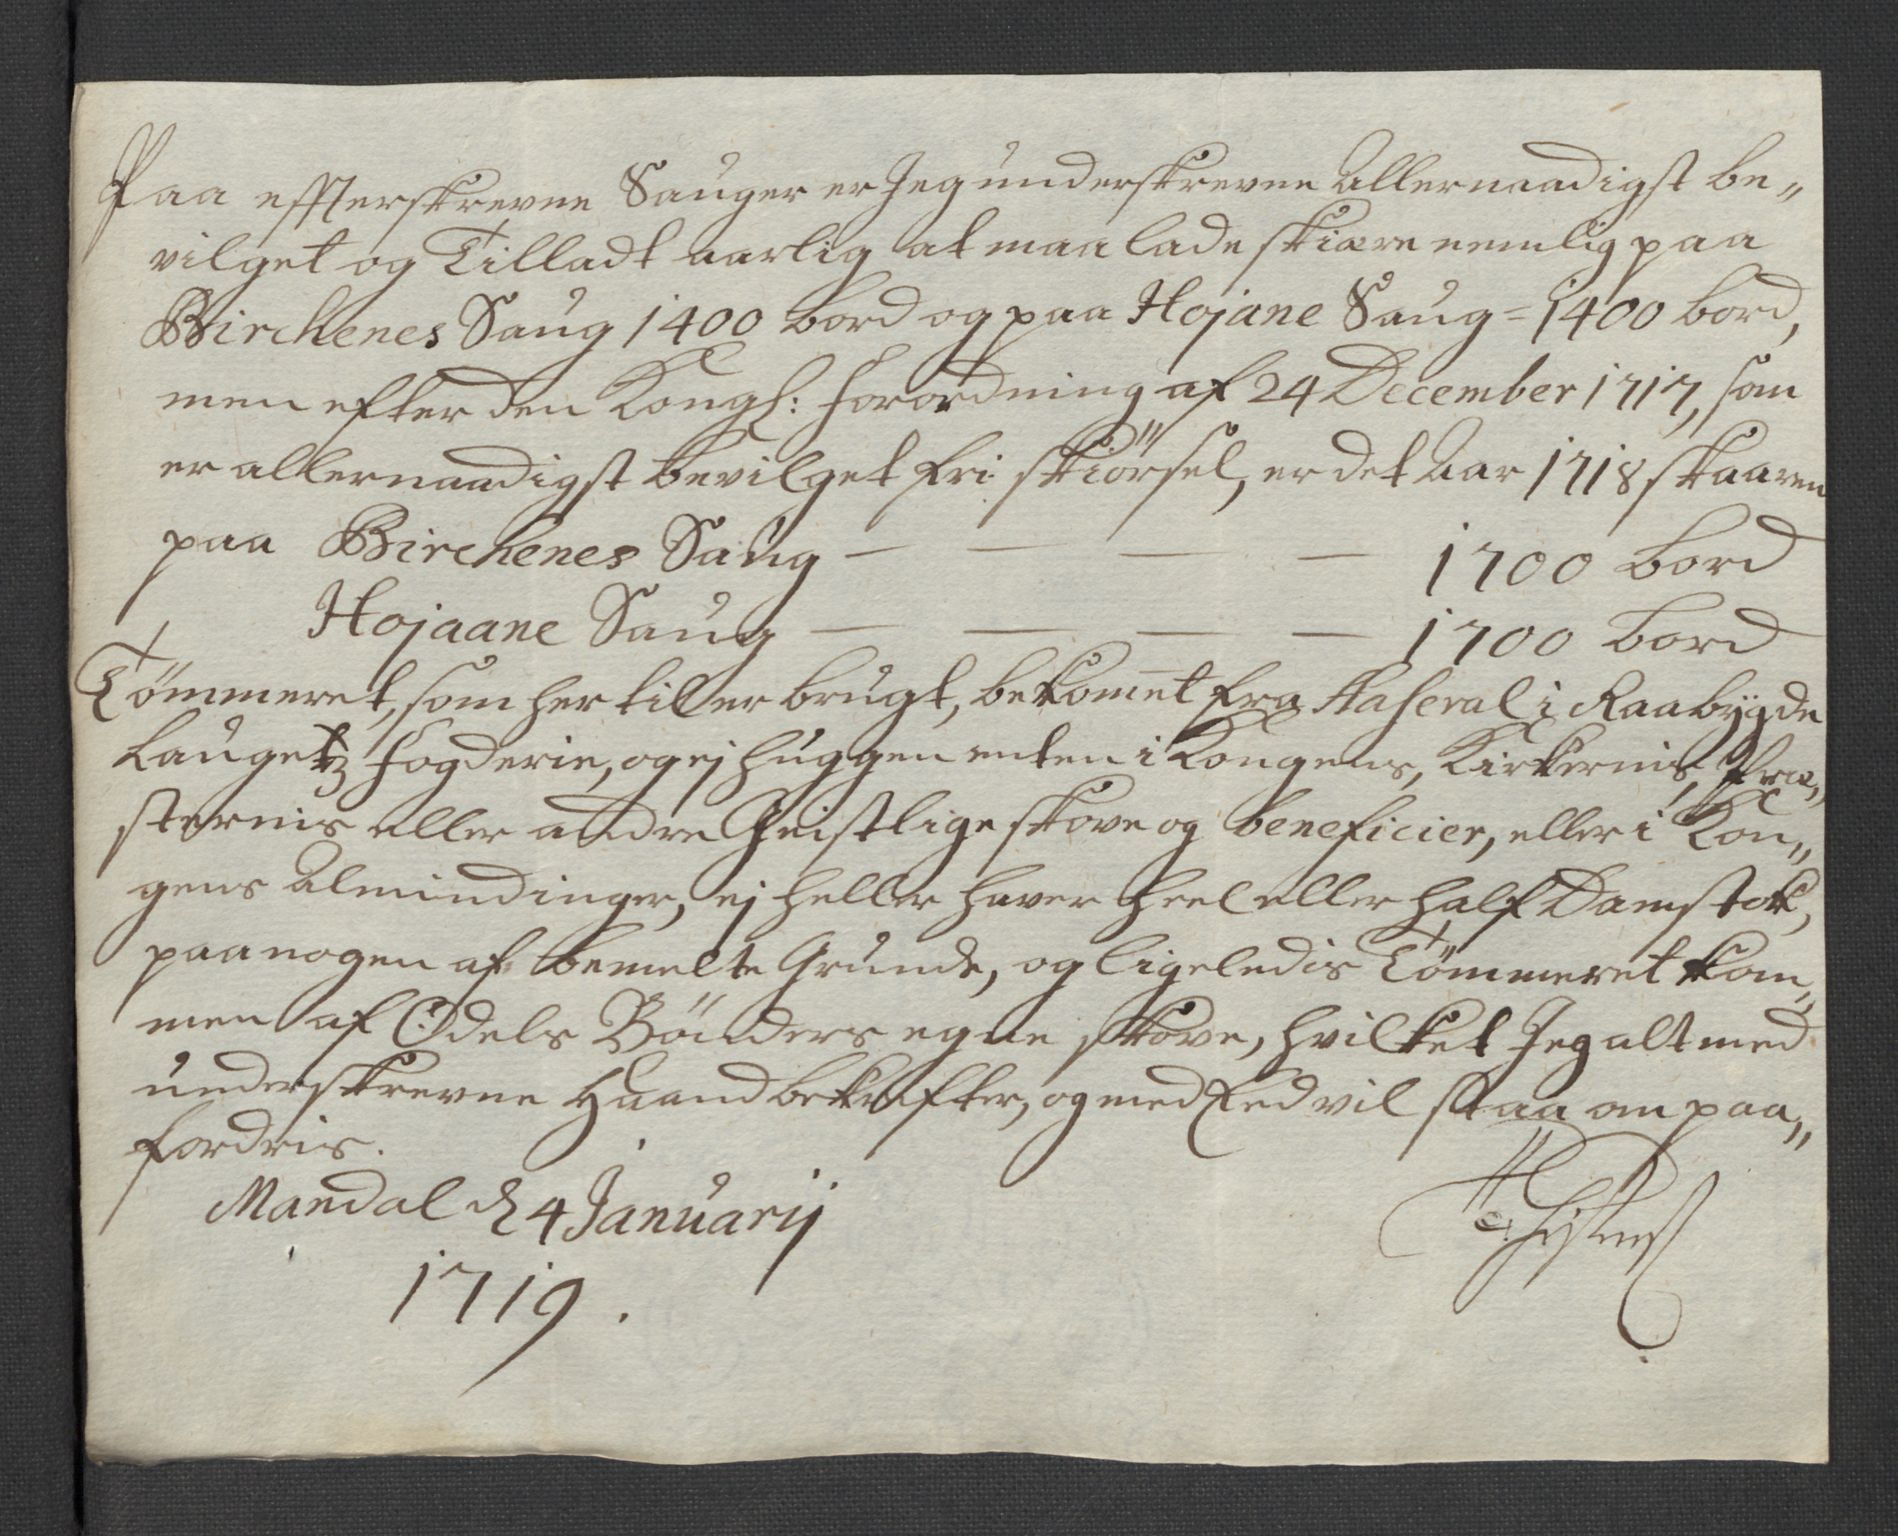 Paa effterskrevne Sauger er Jeg underskrevne Allernaadigst be„
vilget og Tilladt aarlig at maa lade skiære nemlig paa
Birchenes Saug 1400 bord og paa Hojane Saug = 1400 bord,
men efter den Kongl: forordning af 24 December 1717, som
er allernaadigst bevilget fri skiörsel, er det Aar 1718 skaaren
paa Birchenes Saug — — — — 1700 bord
Hojaane Saug — — — — 1700 bord
Tömmeret, som her till er brugt, bekommet fra Aaseral i Raabÿgde
Laugetz fogderie, og ej huggen enten i Kongens, Kirkernis, Præ„
sternis eller andre Geistlige skove og beneficier, eller i Kon„
gens Almindinger, ej heller haver heel eller half Damstok,
paa nogen af bemelte Grunde, og ligeledis Tömmeret kom„
men af Odels Bönders egne skove, hvilket Jeg alt med
underskrevne Haand bekræfter, og med Eed vil staa om paa„
fordris.
Mandal d 4 Januarij
1719.